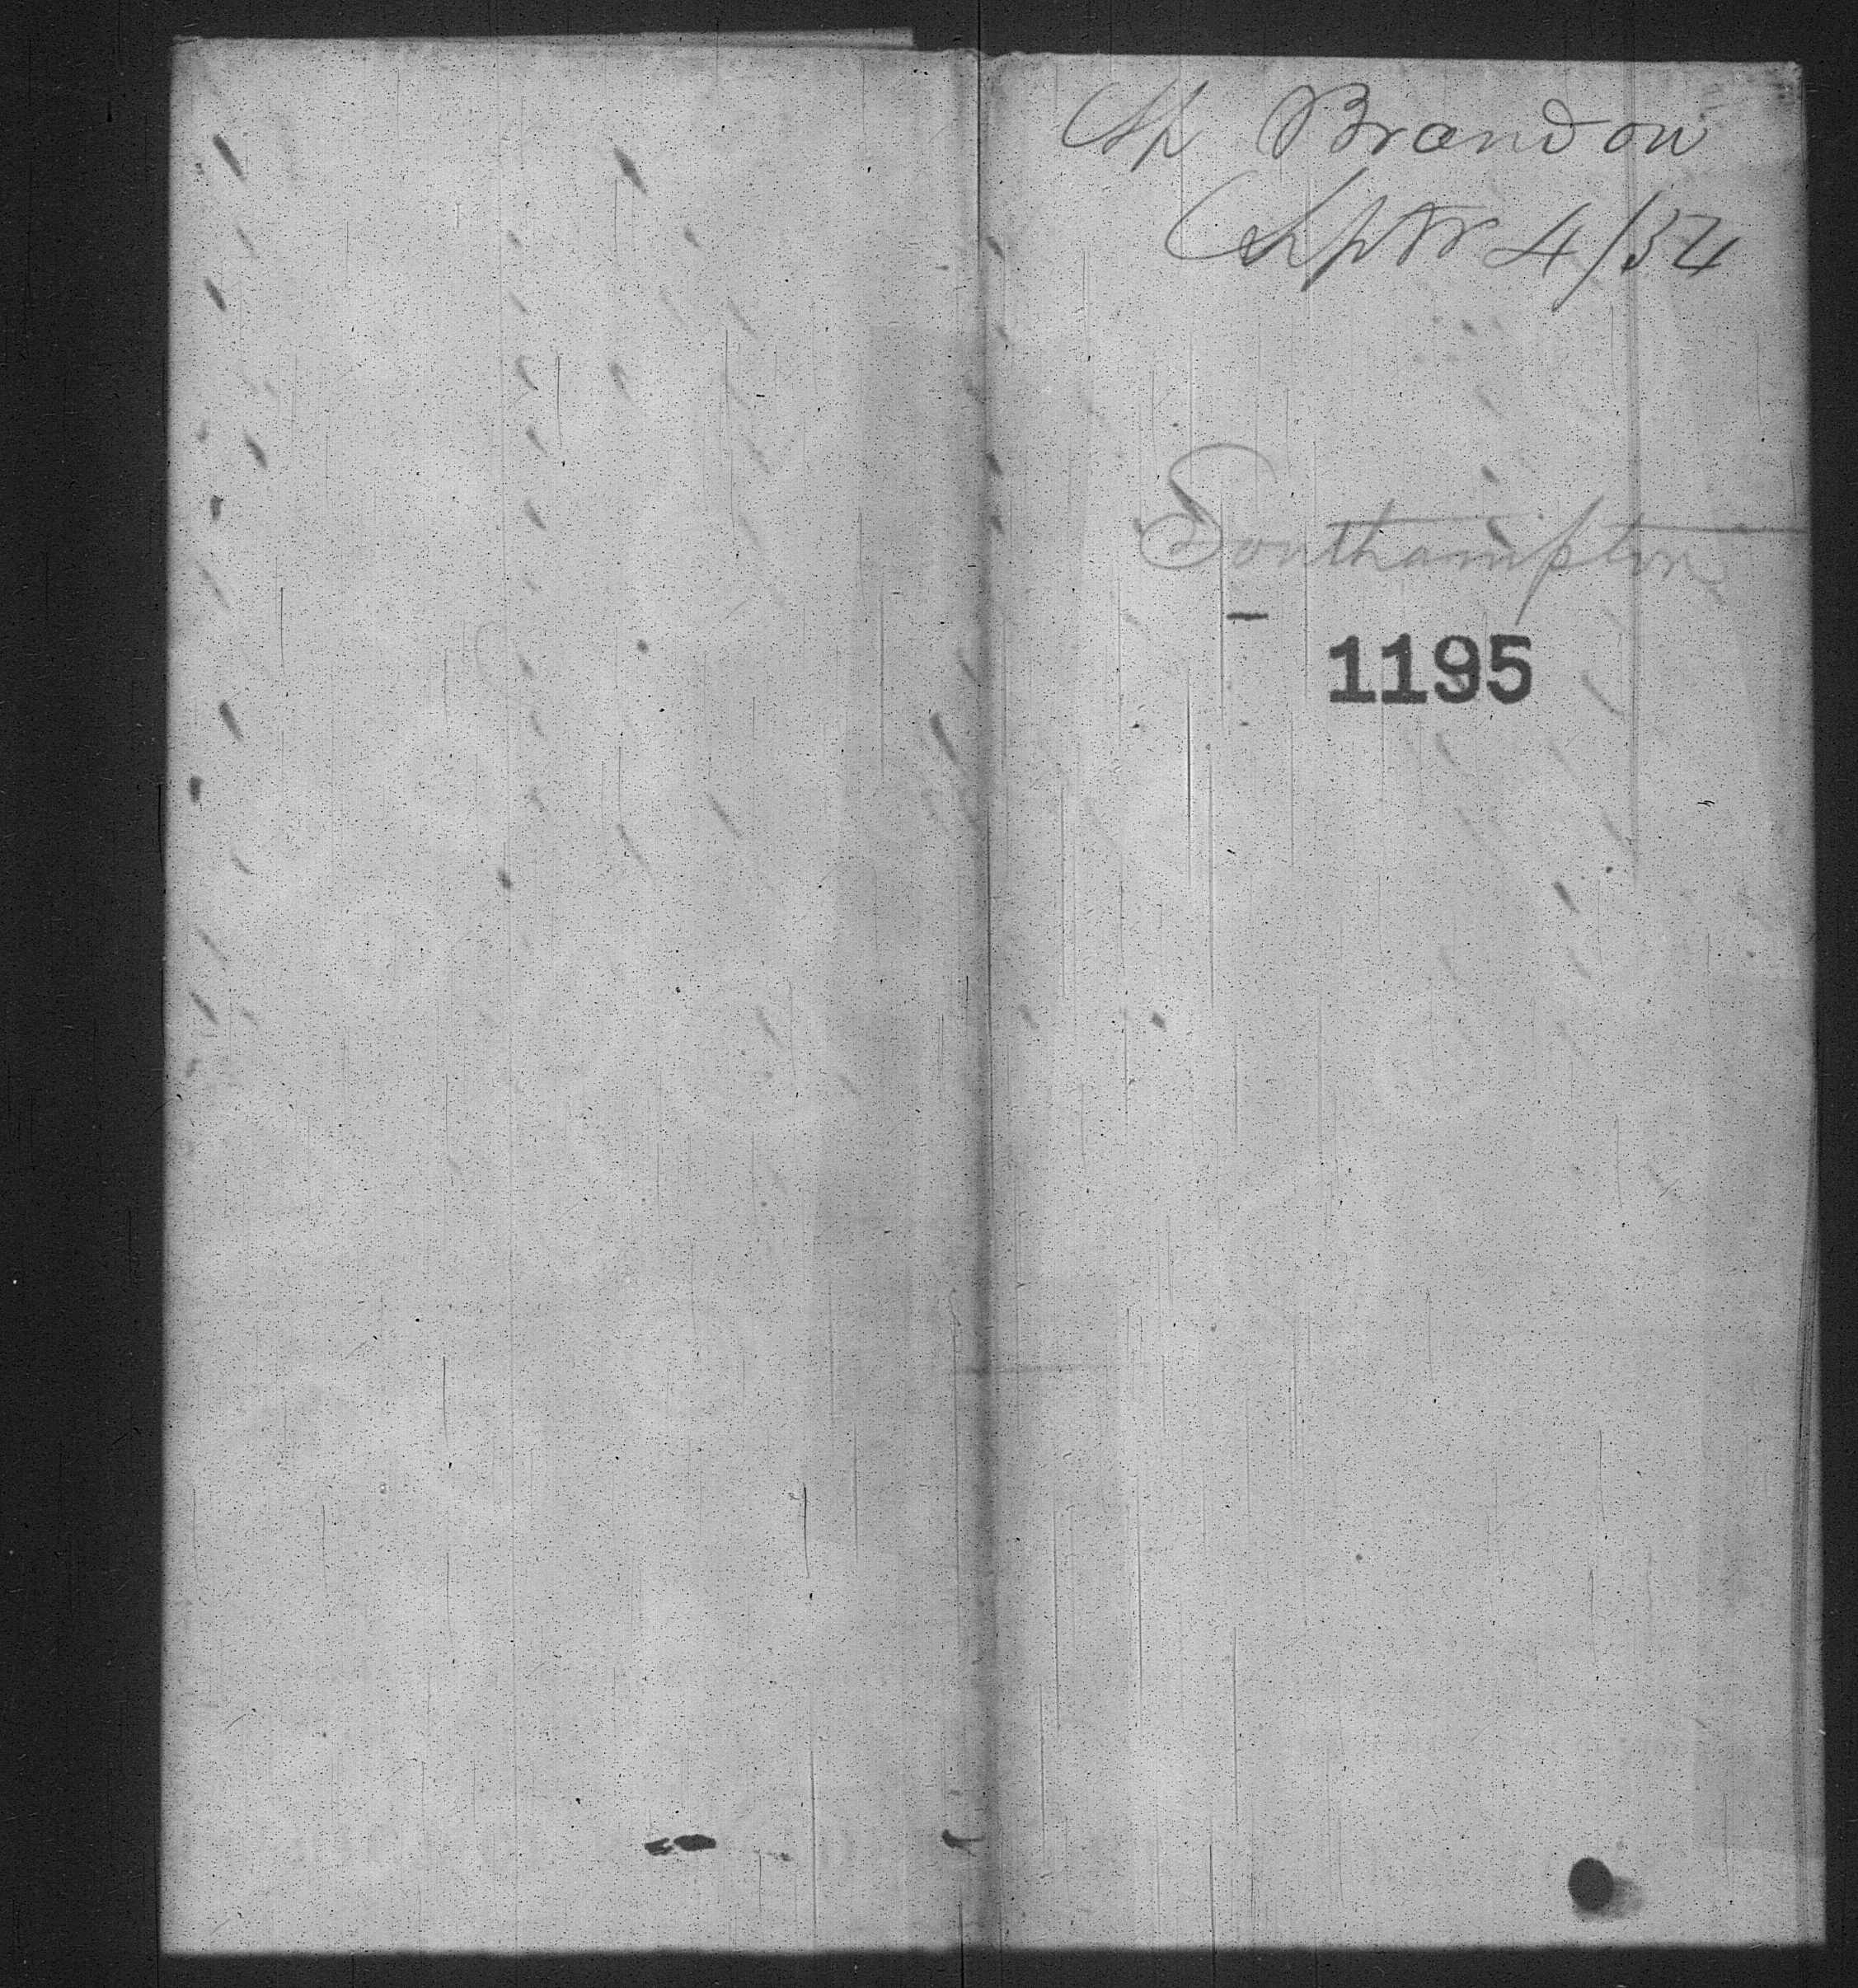 Sp Brandon
Septr 4/54
Southampton
1195